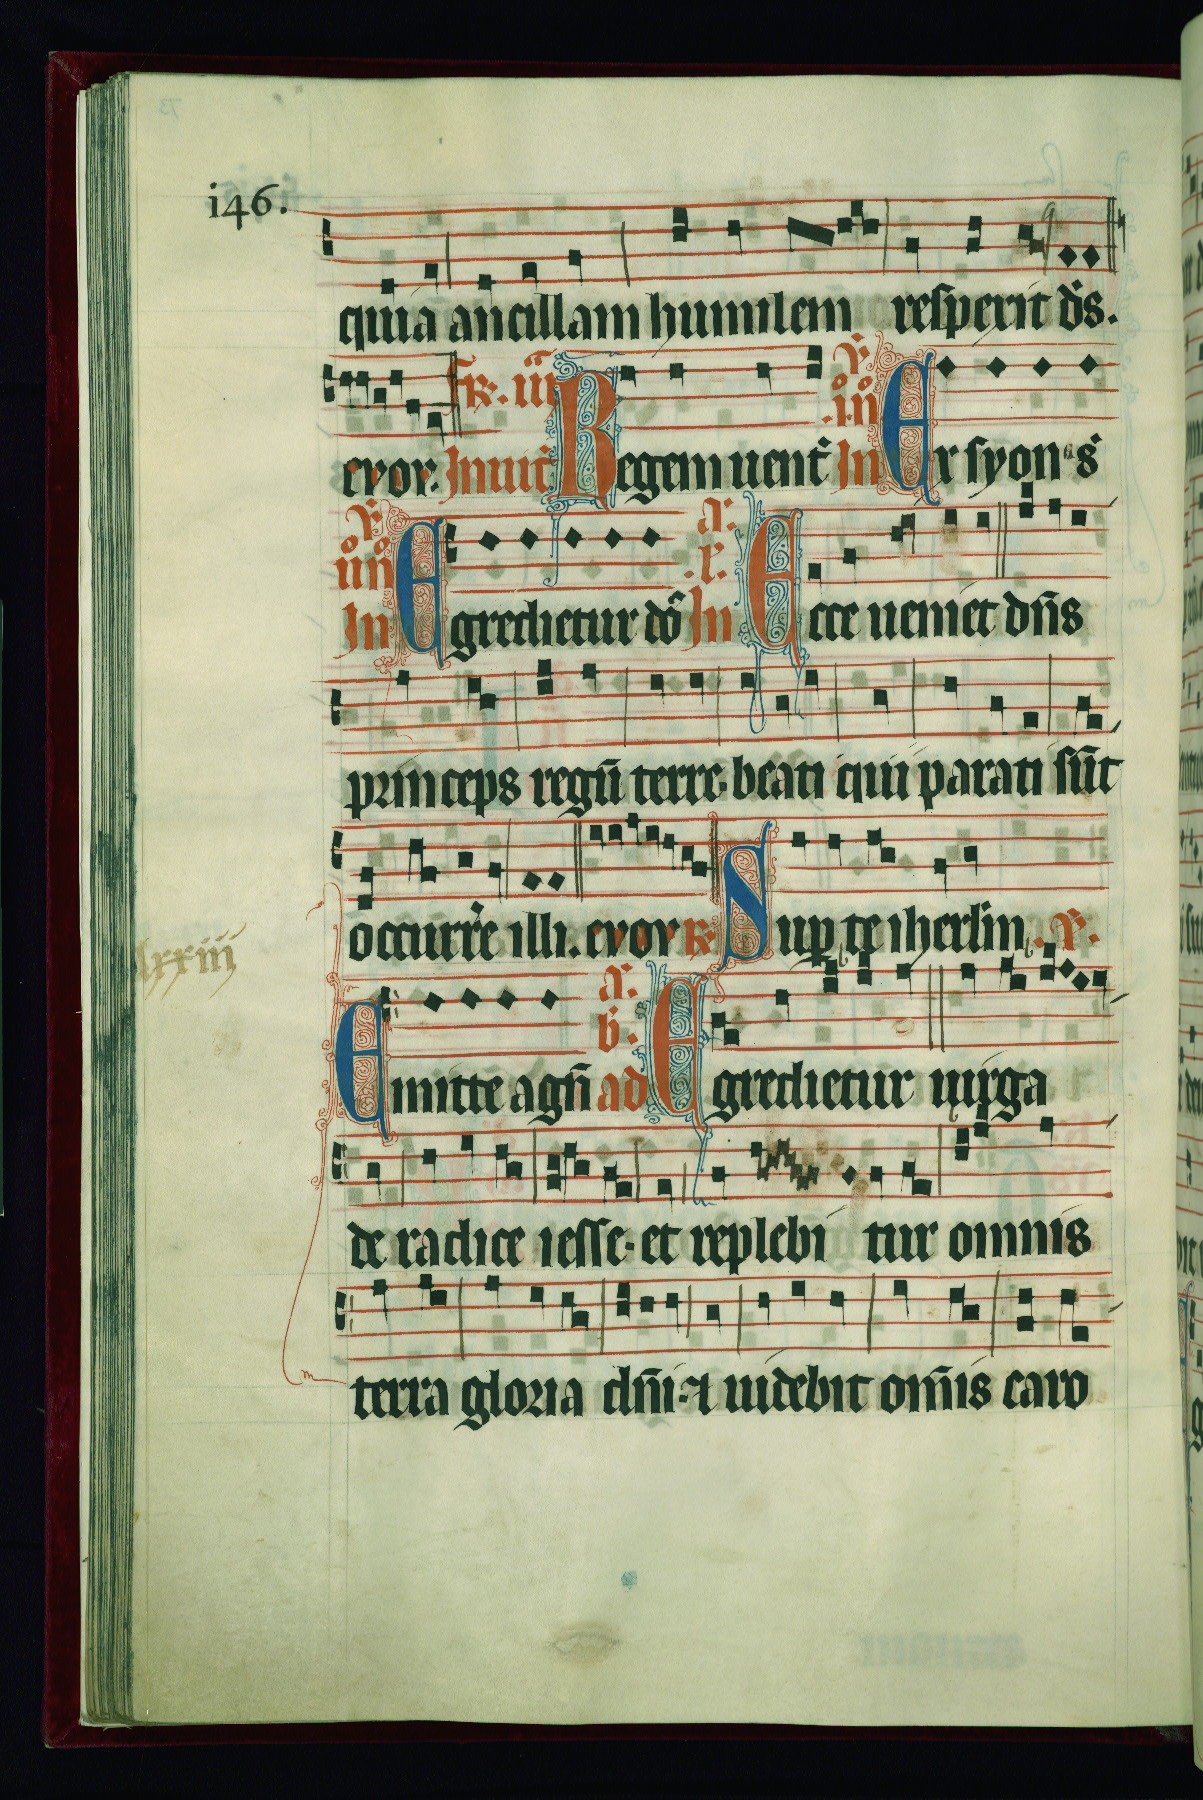 i46.
quia ancillam humilem respexit dn̄s.
evov. Fr. iii Inuit̄ Regem uent̄ .i.n̄ V̄ In Ex syon s̄
V̄ iin̄ In Egredietur dō a. .x. In Ecce ueniet dn̄s
princeps regū terre. beati qui parati sūt
occurrē illi. evov R̄. Sup te iherlm̄. V̄.
lxxiii
Emitte agn̄ a. b. ad Egredietur uirga
de radice iesse. et replebitur omnis
terra gloria dn̄i. ⁊ uidebit om̄is caro